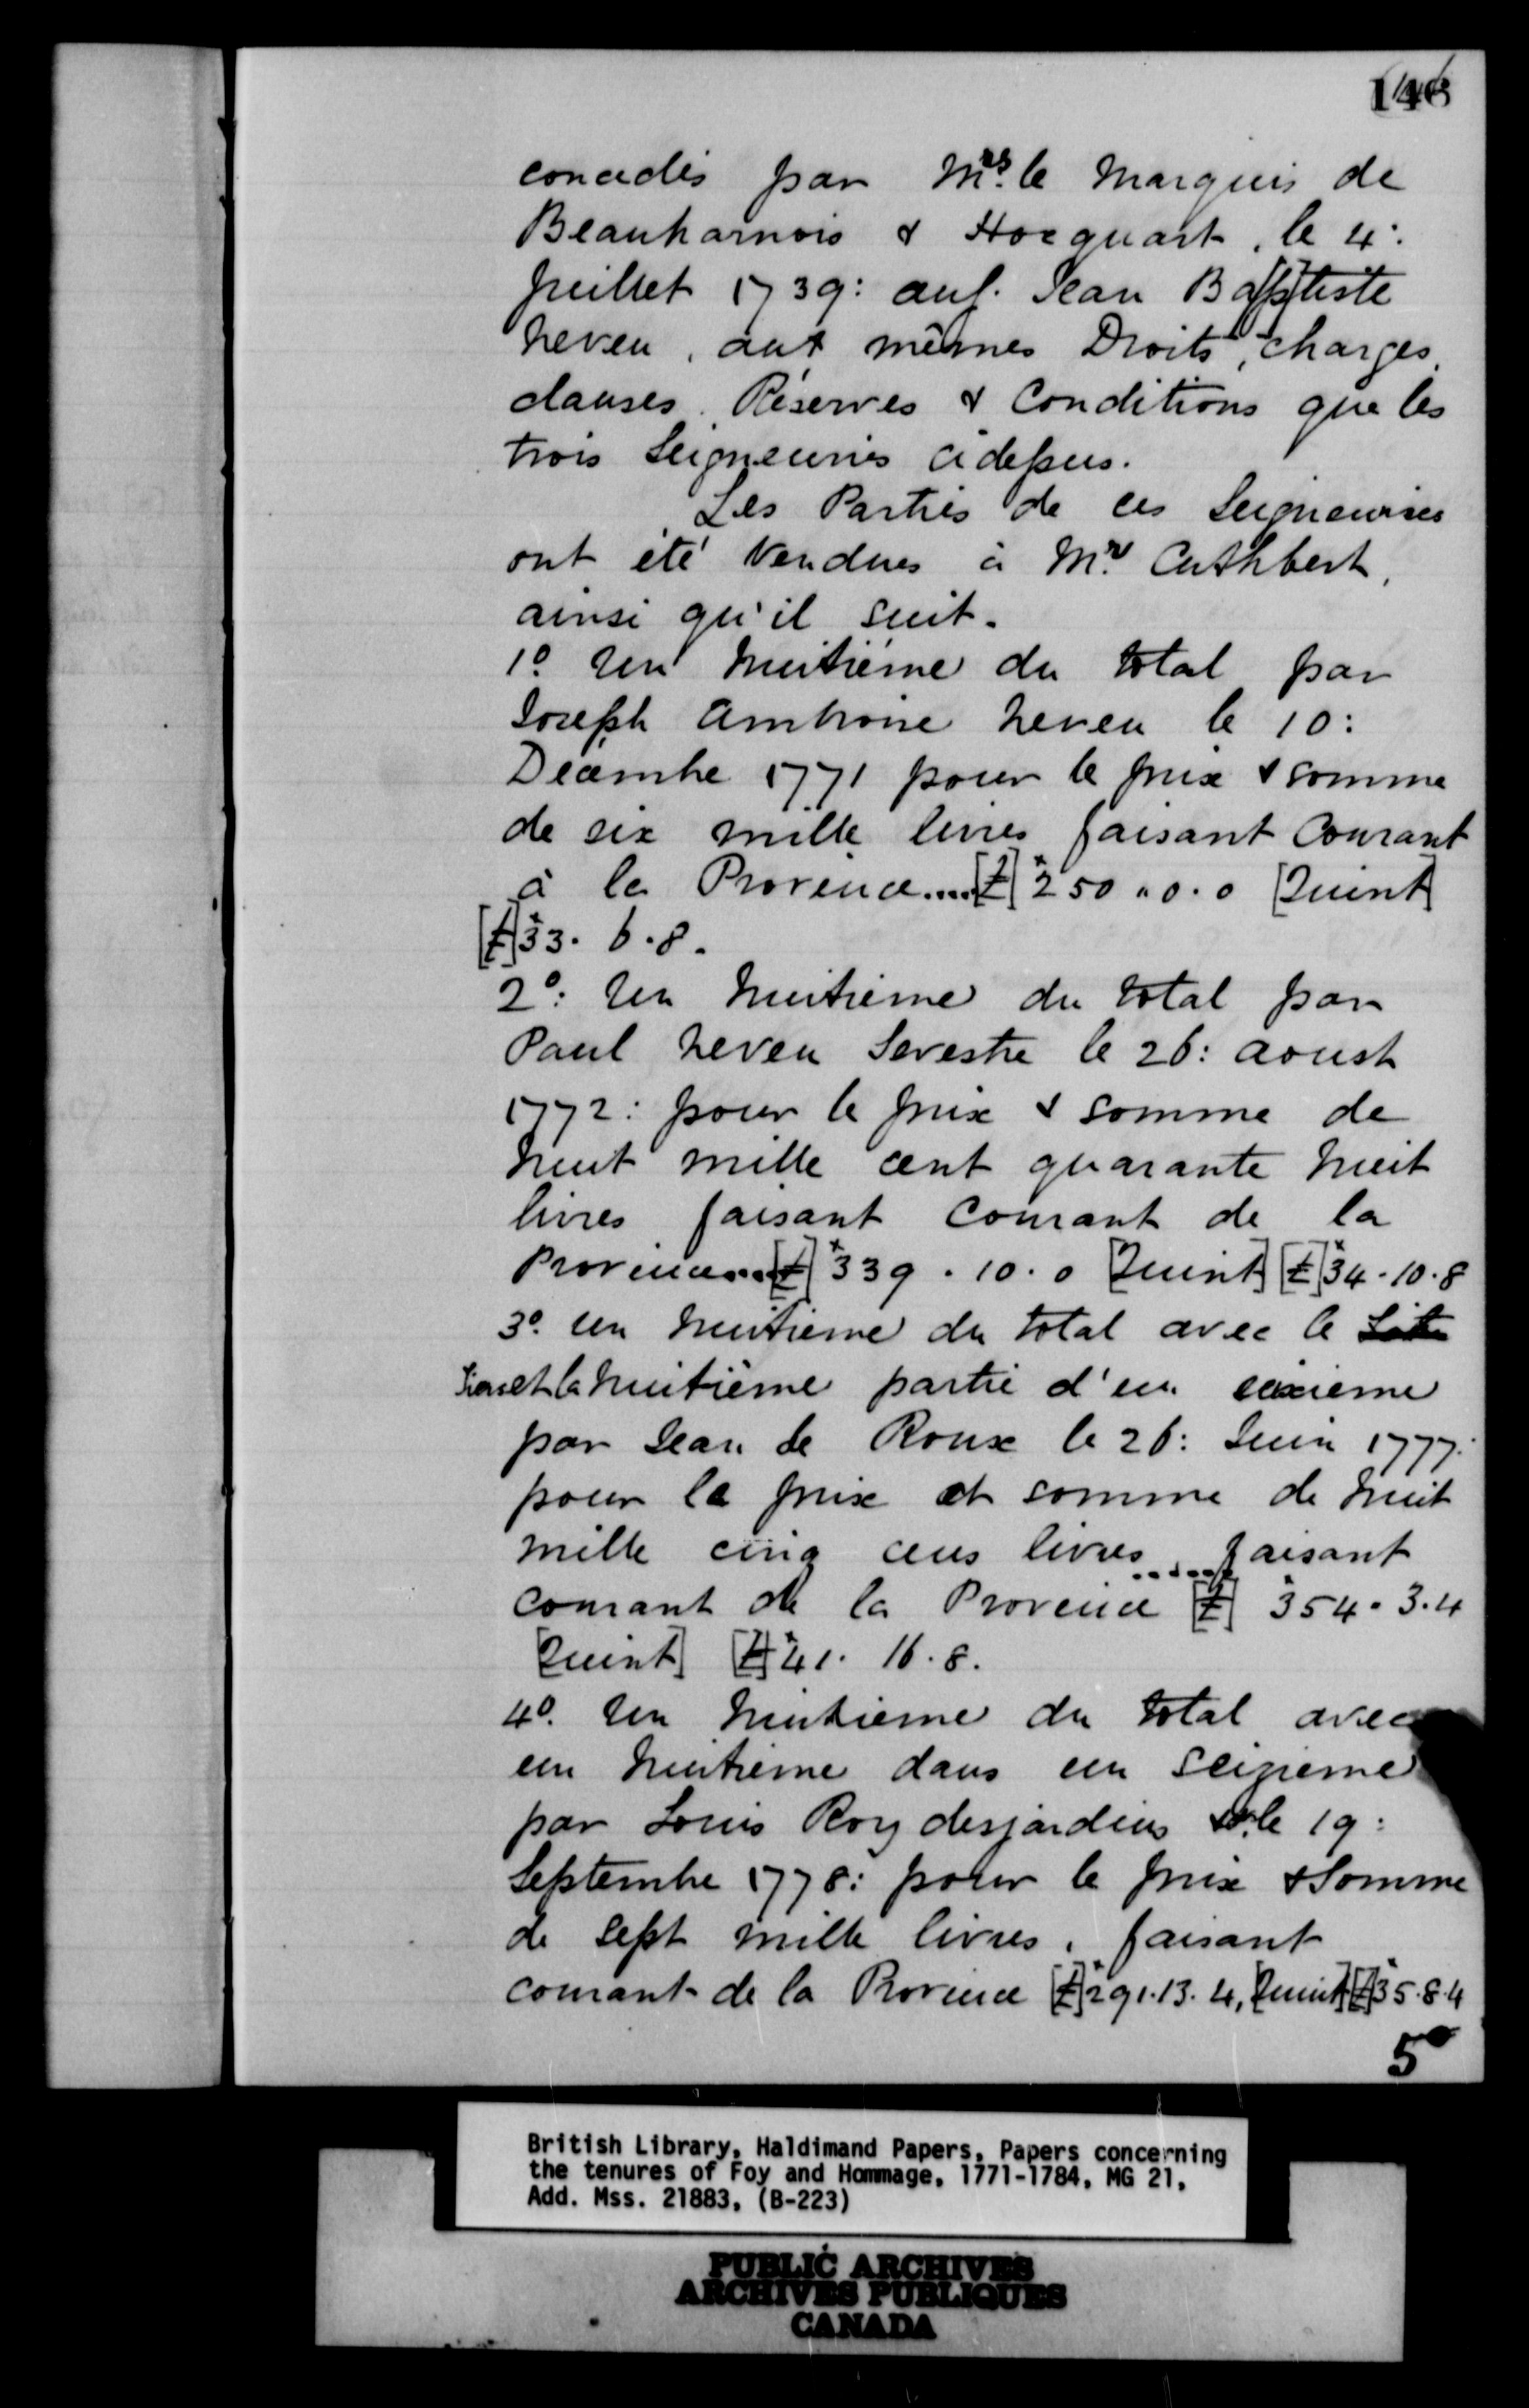 146
concedés par Mrs. le Marquis de
Beauharnois & Hocquart, le 4:
juillet 1739: au f. Jean Ba[p]tiste
Neveu, aux mêmes Droits, charges,
clauses, Réserves & Conditions que les
trois Seigneuries cidessus.
Les Parties de ces Seigneuries
ont été Vendues à Mr. Cuthbert,
ainsi qu'il suit.
1o. Un huitiéme du total par
Joseph Amtroine Neveu le 10:
Decembre 1771 pour le prix & somme
de six mille livres faisant Courant
à la Province....[£] 250.0.0 [Quint]
[£] 33. 6. 8.
2o: Un huitième du total par
Paul Neveu Sevestre le 26: aoust
1772: pour le prix & somme de
huit mille cent quarante huit
livres faisant Courant de la
Province...[£] 339. 10. 0 [Quint] [£] 34. 10. 8
3o. un huitieme du total avec le
et la huitième partie d'un sixieme
par Jean le Roux le 26: Juin 1777:
pour le prix et somme de huit
mille cinq cens livres, faisant
......
courant de la Province [£] 354. 3. 4
[Quint] [£] 41. 16. 8.
4o. Un huitieme du total avec
un huitieme dans un seizieme
par Louis Roy desjardins le 19:
Septembre 1778: pour le prix & Somme
de sept mille livres, faisant
courant de la Province [£] 291. 13. 4, [Quint] [£] 35. 8. 4
5o
British Library, Haldimand Papers, Papers concerning
the tenures of Foy and Hommage, 1771-1784, MG 21,
Add. Mss. 21883, (B-223)
PUBLIC ARCHIVES
ARCHIVES PUBLIQUES
CANADA